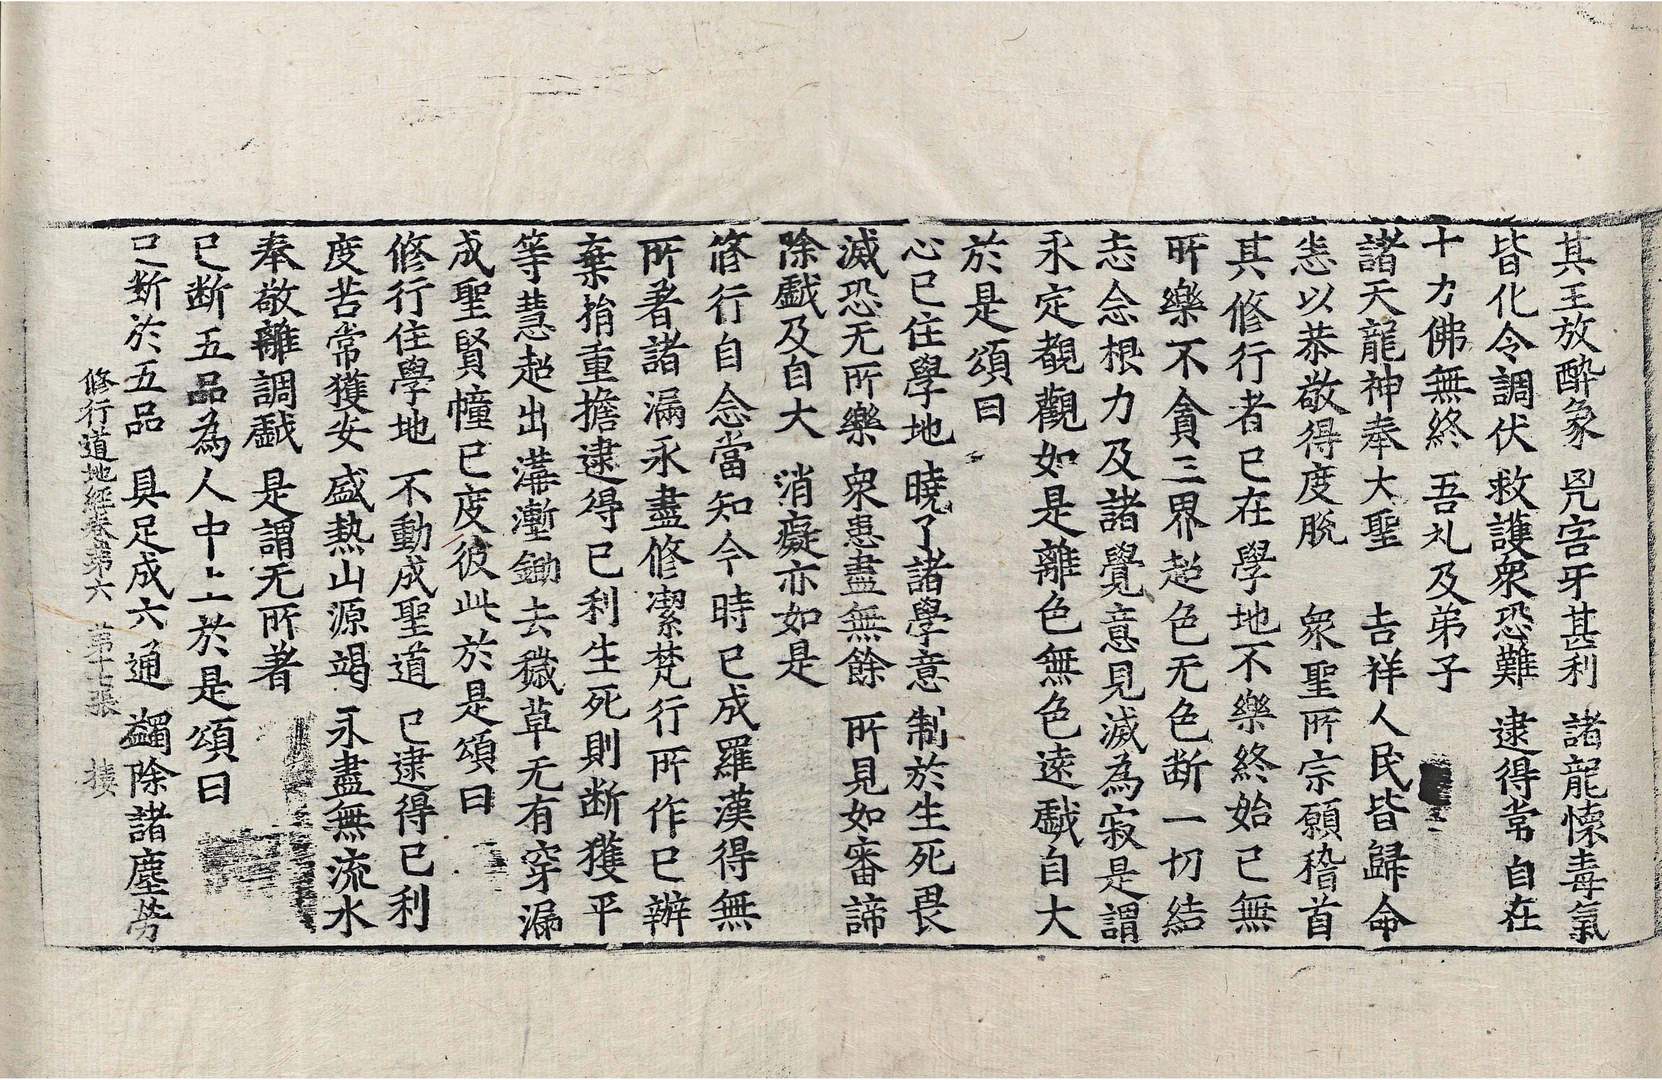 其王放醉象 兇害牙甚利 諸龍懐毒氣
皆化令調伏 救護衆恐難 逮得常自在
十力佛無終 吾礼及弟子
諸天龍神奉大聖 吉祥人民皆歸命
恚以恭敬得度脫 衆聖所宗願稽首
其修行者已在學地不樂終始已無
所樂不貪三界超色无色断一切結
志念根力及諸覺意見滅為寂是謂
永定觀觀如是離色無色遠戱自大
於是頌曰
心已住學地 曉了諸學意 制於生死畏
滅恐无所樂 衆患盡無餘 所見如審諦
除戱及自大 消癡亦如是
修行自念當知今時已成羅漢得無
所著諸漏永盡修潔梵行所作已辦
棄捐重擔逮得已利生死則断獲平
等慧超出溝塹鋤去穢草无有穿漏
成聖賢幢已度彼此於是頌曰
修行住學地 不動成聖道 已逮得已利
度苦常獲安 盛熱山源竭 永盡無流水
奉敬離調戱 是謂无所著
已断五品為人中上於是頌曰
已斷於五品 具足成六通 蠲除諸塵勞
修行道地經卷第六 第十七張 樓